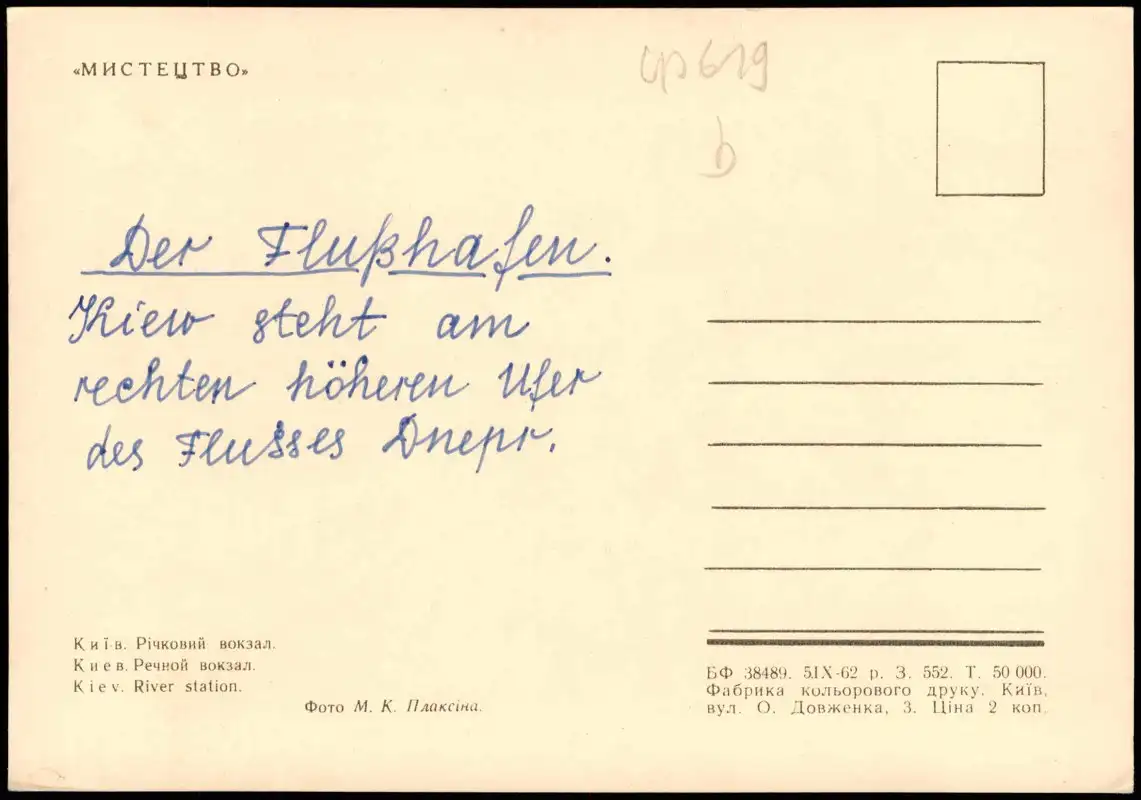 «МИСТЕЦТВО»
Der Flußhafen.
Kiew steht am
rechten höheren Ufer
des Flusses Dnepr.
Київ. Річковий вокзал.
Киев. Речной вокзал.
Kiev. River station.
Фото М. К. Плаксіна.
БФ 38489. 5.IX-62 р. З. 552. Т. 50 000.
Фабрика кольорового друку. Київ,
вул. О. Довженка, 3. Ціна 2 коп.